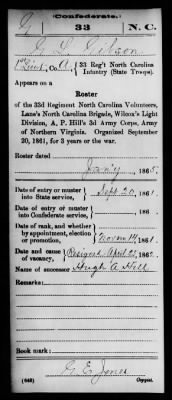 Confederate.
G 33 N. C.
G. L. Gibson
1st Lieut, Co. A, 33 Reg't North Carolina
Infantry (State Troops).
Appears on a
Roster
of the 33d Regiment North Carolina Volunteers,
Lane's North Carolina Brigade, Wilcox's Light
Division, A. P. Hill's 3d Army Corps, Army
of Northern Virginia. Organized September
20, 1861, for 3 years or the war.
Roster dated
Jan'y , 1865.
Date of entry or muster
into State service, Sept 20, 1861.
Date of entry or muster
into Confederate service, , 186 .
Date of rank, and whether
by appointment, election
or promotion, Novem 14, 1861.
Date and cause
of vacancy, Resigned April 21, 1862.
Name of successor Hugh A Hill
Remarks:
Book mark:
(642) G. E. Jones
Copyist.